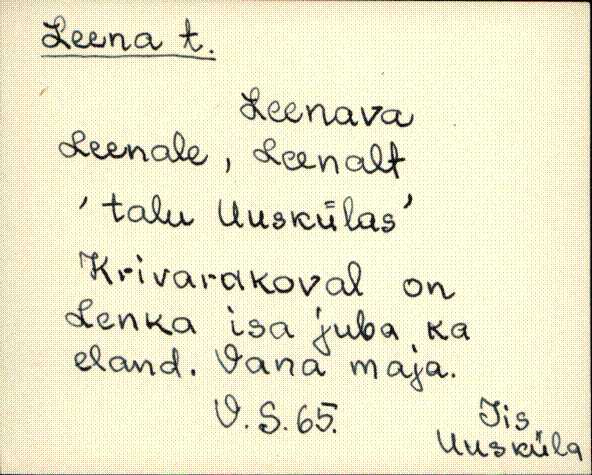 Leena t.
Leenava
Leenale, Leenalt
'talu Uuskülas'
Krivarakoval on
Lenka isa juba ka
eland. Vana maja.
V.S.65.
Iis
Uusküla